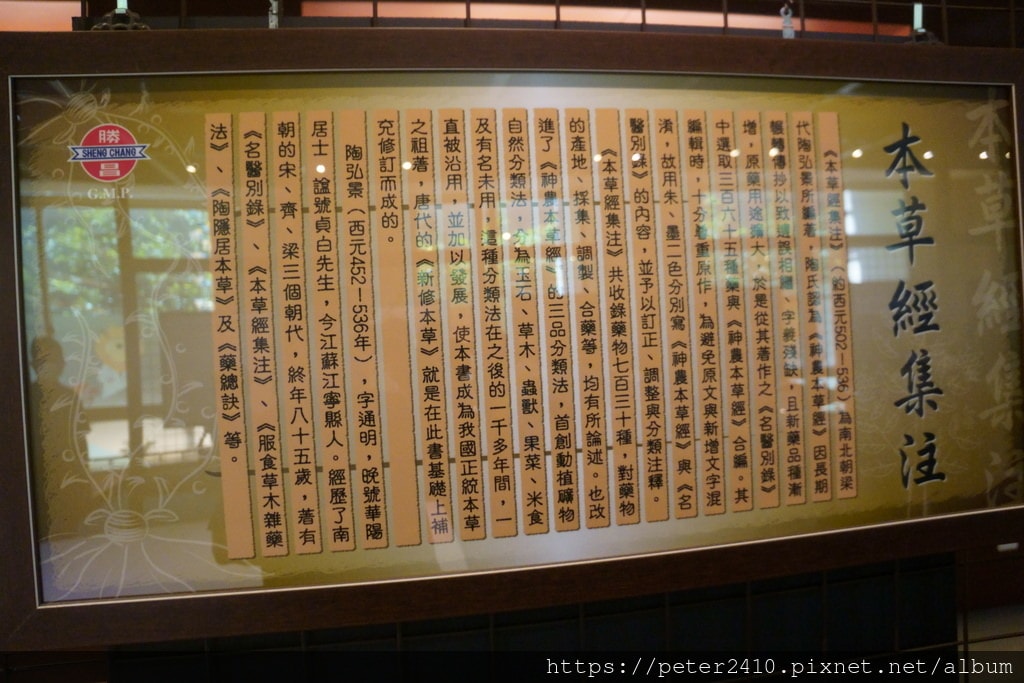 本草經集注
《本草經集注》（約西元502－536）為南北朝梁
代陶弘景所編著，陶氏認為《神農本草經》因長期
輾轉傳抄以致遺誤相雜、字義淺缺，且新藥品種漸
增，原藥用途擴大，於是從其著作之《名醫別錄》
中選取三百六十五種藥與《神農本草經》合編。其
編輯時，十分尊重原作，為避免原文與新增文字混
淆，故用朱、墨二色分別寫《神農本草經》與《名
醫別錄》的內容，並予以訂正、調整與分類注釋。
《本草經集注》共收錄藥物七百三十種，對藥物
的產地、採集、調製、合藥等，均有所論述。也改
進了《神農本草經》的三品分類法，首創動植礦物
自然分類法，分為玉石、草木、蟲獸、果菜、米食
及有名未用，這種分類法在之後的一千多年間，一
直被沿用，並加以發展，使本書成為我國正統本草
之祖著，唐代的《新修本草》就是在此書基礎上補
充修訂而成的。
陶弘景（西元452－536年），字通明，晚號華陽
居士，諡號貞白先生，今江蘇江寧縣人。經歷了南
朝的宋、齊、梁三個朝代，終年八十五歲，著有
《名醫別錄》、《本草經集注》、《服食草木雜藥
法》、《陶隱居本草》及《藥總訣》等。
勝
SHENG CHANG
昌
G.M.P.
https://peter2410.pixnet.net/album